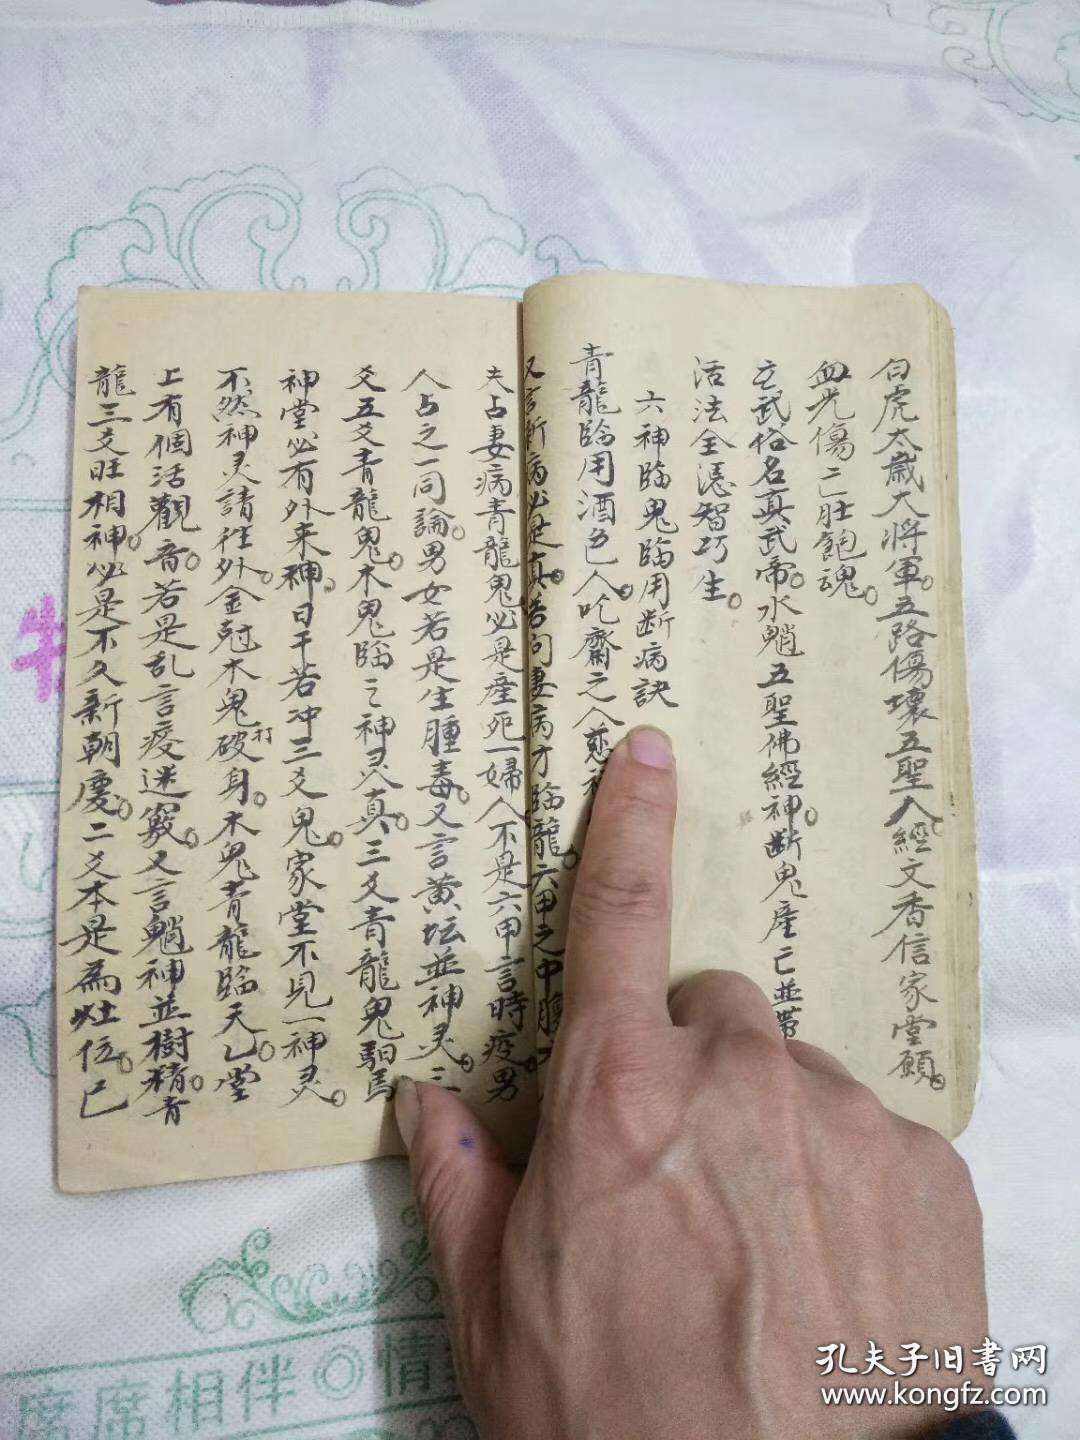 白虎太歲大將軍。五路傷壞五聖人。經文香信家堂願。
血光傷亡肚飽魂。
玄武俗名真武帝。水魈五聖佛經神。斷鬼產亡並帶
活法全憑智巧生。
六神臨鬼臨用斷病訣
青龍臨用酒色人。吃齋之人慈
又言新病必是真。若問妻病才臨龍。六甲之中腹
夫占妻病青龍鬼。必是產死一婦人。不是六甲言時疫。男
人占之一同論。男女若是生腫毒。又言黄坛並神灵。三
爻五爻青龍鬼。木鬼臨之神灵真。三爻青龍鬼駟馬
神堂必有外来神。日干若冲三爻鬼。家堂不見一神灵。
不然神灵請往外。金尅木鬼破打身。木鬼青龍臨天乙。堂
上有個活觀音。若是乱言疫迷竅。又言魈神並樹精。青
龍三爻旺相神。必是不久新朝慶。二爻本是為灶位。已
孔夫子旧書网
www.kongfz.com
席席相伴◎情